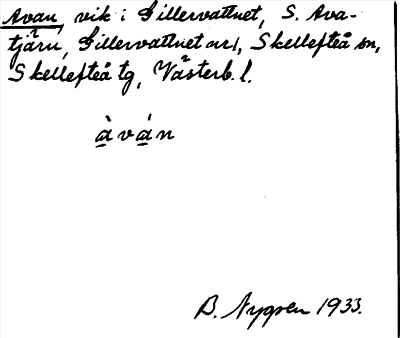 Avan, vik i Gillervattnet, S. Ava-
tjärn, Gillervattnet nr 1, Skellefteå sn,
Skellefteå tg, Västerb. l.
à̲vá̲n
B. Nygren 1933.